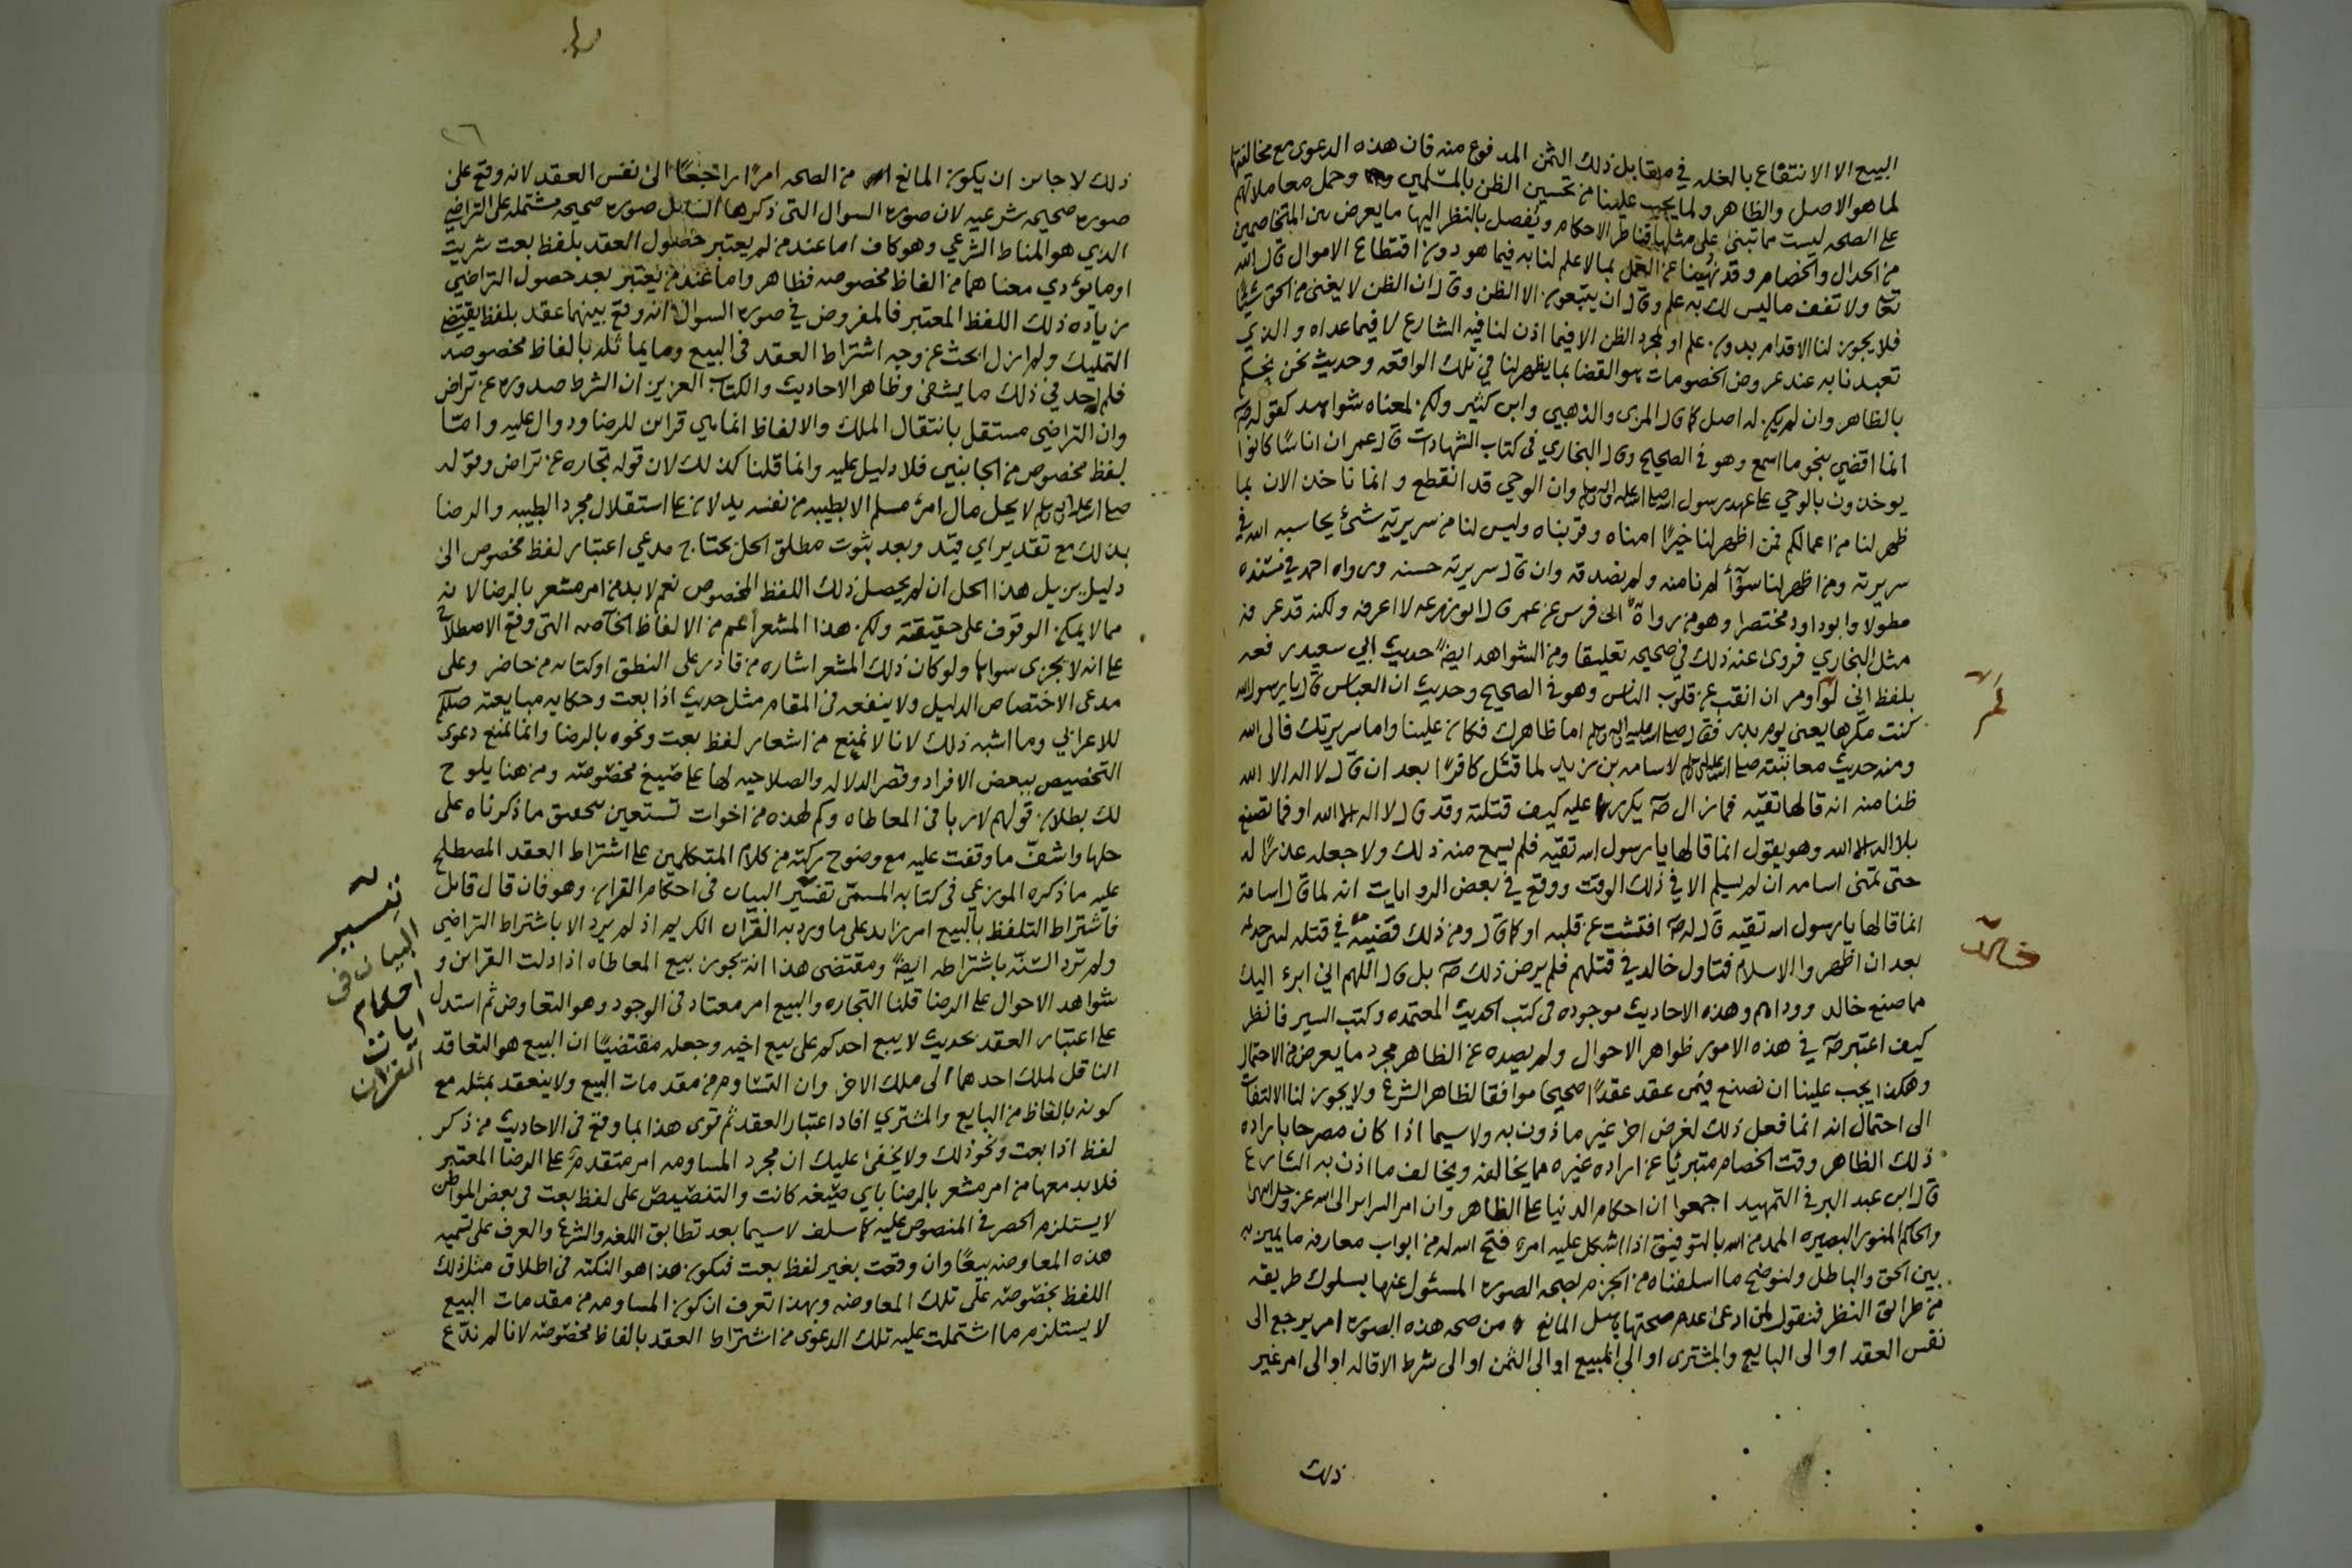 البيع الا الانتفاع بالغله في مقابل ذلك الثمن المدفوع منه فان هذه الدعوى مع مخالفتها
لما هو الاصل والظاهر ولما يجب علينا من تحسين الظن بالمسلمين وحمل معاملاتهم
على الصحه ليست مما تبنى على مثلها قناطر الاحكام ويفصل بالنظر اليها ما يعرض بين المتخاصمين
من الجدال والخصام وقد نهينا عن العمل بما لا علم لنا به فيما هو دون اقتطاع الاموال قال الله
تعا ولا تقف ما ليس لك به علم وقال ان يتبعون الا الظن وقال ان الظن لا يغنى من الحق شيئا
فلا يجوز لنا الاقدام بدون علم او لمجرد الظن الا فيما اذن لنا فيه الشارع لا فيما عداه والذي
تعبدنا به عند عروض الخصومات هو القضا بما يظهر لنا في تلك الواقعه وحديث نحن نحكم
بالظاهر وان لم يكن له اصل كما قال المزى والذهبي وابن كثير ولكن لمعناه شواهد كقوله صه
انما اقضي بنحو ما اسمع وهو في الصحيح وقال البخاري في كتاب الشهادات قال عمر ان اناسًا كانوا
يوخذون بالوحي على عهد رسول الله صلى الله عليه واله وسلم وان الوحي قد انقطع وانما ناخذ الان بما
ظهر لنا من اعمالكم فمن اظهر لنا خيرًا امناه وقربناه وليس لنا من سريرته شئ يحاسبه الله في
سريرته ومن اظهر لنا سوًأ لم نامنه ولم نصدقه وان قال سريرته حسنه ورواه احمد في مسنده
مطولا وابو داود مختصرا وهو من رواة ابى فرس عن عمر قال ابو زرعه لا اعرفه ولكنه قد عرفه
مثل البخاري فروى عنه ذلك في صحيحه تعليقا ومن الشواهد ايضًا حديث ابي سعيد رفعه
بلفظ اني لم اومر ان انقب عن قلوب الناس وهو في الصحيح وحديث ان العباس قال يا رسول الله
كنت مكرها يعنى يوم بدر فقال صلى الله عليه واله وسلم اما ظاهرك فكان علينا واما سريرتك فالى الله
ومنه حديث معاتبته صلى الله عليه واله وسلم لاسامه بن زيد لما قتل كافرًا بعد ان قال لا اله الا الله
ظنا منه انه قالها تقيه فما زال صه يكرر عليه كيف قتلته وقد قال لا اله الا الله او فما تصنع
بلا اله الا الله وهو يقول انما قالها يا رسول الله تقيه فلم يسمع منه ذلك ولا جعله عذرًا له
حتى تمنى اسامه ان لم يسلم الا في ذلك الوقت ووقع في بعض الروايات انه لما قال اسامة
انما قالها يا رسول الله تقيه قال له صه افتشت عن قلبه او كما قال ومن ذلك قضيته في قتله لبنى جذيمه
بعد ان اظهروا الاسلام فتاول خالد في قتلهم فلم يرض ذلك صه بل قال اللهم اني ابرء اليك
مما صنع خالد ووداهم وهذه الاحاديث موجوده في كتب الحديث المعتمده وكتب السير فانظر
كيف اعتبر صه في هذه الامور ظواهر الاحوال ولم يصده عن الظاهر مجرد ما يعرض من الاحتمال
وهكذا يجب علينا ان نصنع فيمن عقد عقدًا صحيحا موافقا لظاهر الشرع ولا يجوز لنا الالتفات
الى احتمال انه انما فعل ذلك لغرض اخر غير ماذون به ولا سيما اذا كان مصرحا بارادة
ذلك الظاهر وقت الخصام متبريًا عن ارادة غيره مما يخالفه ويخالف ما اذن به الشارع
قال ابن عبد البر في التمهيد اجمعوا ان احكام الدنيا على الظاهر وان امر السراير الى الله عز وجل
والحاكم المنور البصيره الممد من الله بالتوفيق اذا اشكل عليه امر فتح الله له من ابواب معارفه ما يميز به
بين الحق والباطل ولنوضح ما اسلفناه من الجزم بصحه الصوره المسئول عنها بسلوك طريقه
من طرايق النظر فنقول لمن ادعى عدم صحتها هل المانع من صحه هذه الصوره امر يرجع الى
نفس العقد او الى البايع والمشترى او الى المبيع او الى الثمن او الى شرط الاقاله او الى امر غير
ذلك
عمر
خالد
٢٦
ذلك لا جايز ان يكون المانع من الصحه امرًا راجعًا الى نفس العقد لانه وقع على
صوره صحيحه شرعيه لان صوره السوال التى ذكرها السايل صوره صحيحه مشتمله على التراضي
الذي هو المناط الشرعي وهو كاف اما عند من لم يعتبر حصول العقد بلفظ بعت شريت
او ما يؤدي معناهما من الفاظ مخصوصه فظاهر واما عند من يعتبر بعد حصول التراضي
زيادة ذلك اللفظ المعتبر فالمفروض في صوره السوال انه وقع بينهما عقد بلفظ يقتضي
التمليك ولم ازل ابحث عن وجه اشتراط العقد في البيع وما يماثله بالفاظ مخصوصه
فلم اجد في ذلك ما يشفى وظاهر الاحاديث والكتاب العزيز ان الشرط صدوره عن تراض
وان التراضي مستقل بانتقال الملك والالفاظ انما هي قراين للرضا ودوال عليه وامّا
لفظ مخصوص من الجانبين فلا دليل عليه وانما قلنا كذلك لان قوله تجاره عن تراض وقوله
صلى الله عليه واله وسلم لا يحل مال امرئ مسلم الا بطيبه من نفسه يدلان على استقلال مجرد الطيبه والرضا
بذلك مع تقدير اي قيد وبعد ثبوت مطلق الحل يحتاج مدعي اعتبار لفظ مخصوص الى
دليل يزيل هذا الحل ان لم يحصل ذلك اللفظ المخصوص نعم لا بد من امر مشعر بالرضا لانه
مما لا يمكن الوقوف على حقيقته ولكن هذا المشعر أعم من الالفاظ الخاصه التى وقع الاصطلاح
على انه لا يجزى سواها ولو كان ذلك المشعر اشاره من قادر على النطق او كتابه من حاضر وعلى
مدعى الاختصاص الدليل ولا ينفعه في المقام مثل حديث اذا بعت وحكايه مبايعته صللم
للاعرابي وما اشبه ذلك لانا لا نمنع من اشعار لفظ بعت ونحوه بالرضا وانما نمنع دعوى
التخصيص ببعض الافراد وقصر الدلاله والصلاحيه لها على صيغ مخصوصه ومن هنا يلوح
لك بطلان قولهم لا ربا في المعاطاه وكم لهذه من اخوات تستعين بتحقيق ما ذكرناه على
حلها واشف ما وقفت عليه مع وضوح ركته من كلام المتكلمين على اشتراط العقد المصطلح
عليه ما ذكره الموزعي في كتابه المسمى تفسير البيان في احكام القران وهو فان قال قايل
فاشتراط التلفظ بالبيع امر زايد على ما ورد به القران الكريم اذ لم يرد الا باشتراط التراضي
ولم ترد السنّة باشتراطه ايضًا ومقتضى هذا انه يجوز بيع المعاطاه اذا دلت القراين و
شواهد الاحوال على الرضا قلنا التجاره والبيع امر معتاد في الوجود وهو التعاوض ثم استدل
على اعتبار العقد بحديث لا يبع احدكم على بيع اخيه وجعله مقتضيًا ان البيع هو التعاقد
الناقل لملك احدهما الى ملك الاخر وان التساوم من مقدمات البيع ولا ينعقد بمثله مع
كونه بالفاظ من البايع والمشتري افاد اعتبار العقد ثم قوى هذا بما وقع في الاحاديث من ذكر
لفظ اذا بعت ونحو ذلك ولا يخفى عليك ان مجرد المساومه امر متقدم على الرضا المعتبر
فلا بد معها من امر مشعر بالرضا باي صيغه كانت والتنصيص على لفظ بعت في بعض المواطن
لا يستلزم الحصر في المنصوص عليه كما سلف لا سيما بعد تطابق اللغه والشرع والعرف على تسميه
هذه المعاوضه بيعًا وان وقعت بغير لفظ بعت فيكون هذا هو النكته في اطلاق مثل ذلك
اللفظ بخصوصه على تلك المعاوضه وبهذا تعرف ان كون المساومه من مقدمات البيع
لا يستلزم ما اشتملت عليه تلك الدعوى من اشتراط العقد بالفاظ مخصوصه لانا لم ندّع
تفسير
البيان في
احكام
ايات
القران